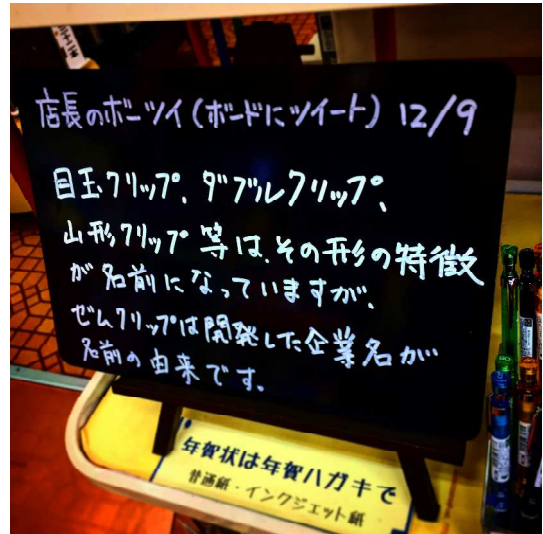 店長のボーツイ(ボードにツイート) 12/9
目玉クリップ、ダブルクリップ、
山形クリップ等は、その形の特徴
が名前になっていますが、
ゼムクリップは開発した企業名が
名前の由来です。
年賀状は年賀ハガキで
普通紙・インクジェット紙